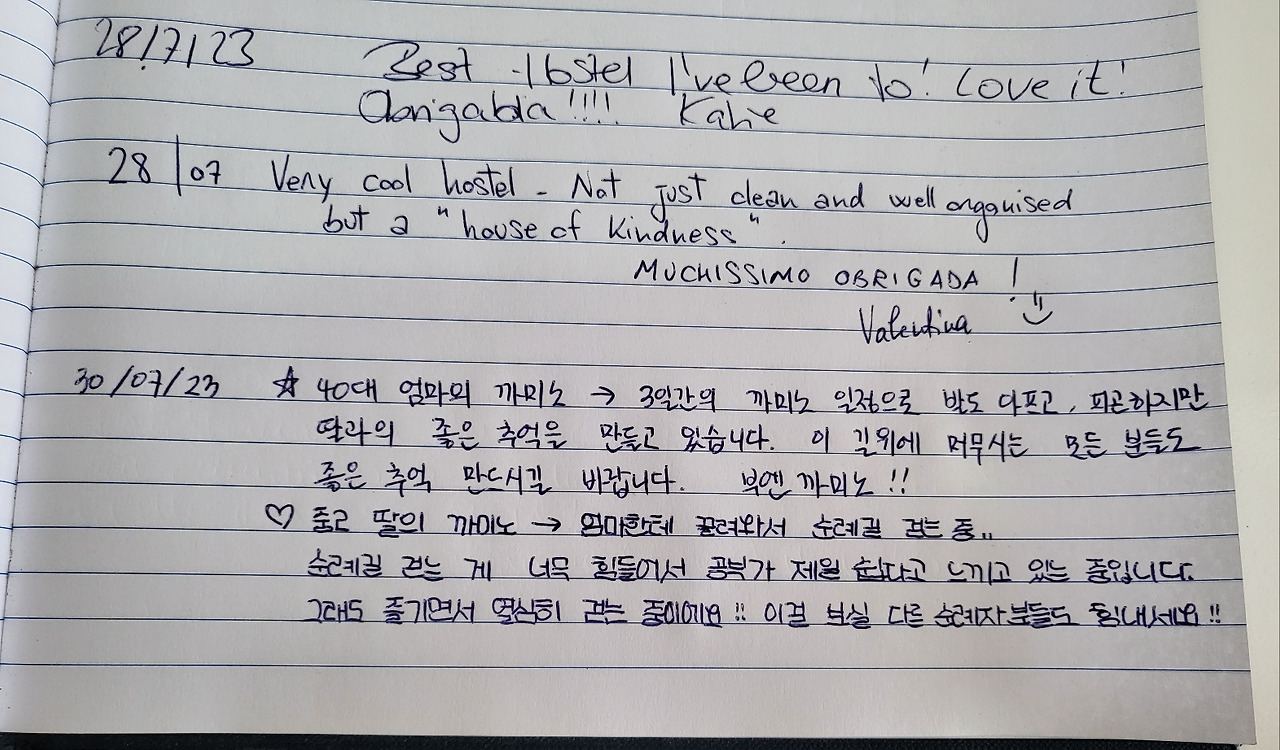 28/7/23 Best Hostel I've been to! Love it!
Obrigada!!!! Katie
28/07 Very cool hostel - Not just clean and well organised
but a "house of kindness".
MUCHISSIMO OBRIGADA !
Valentina
30/07/23 ☆ 40대 엄마의 까미노 → 3일간의 까미노 일정으로 발도 아프고, 피곤하지만
딸과의 좋은 추억을 만들고 있습니다. 이 길위에 머무시는 모든 분들도
좋은 추억 만드시길 바랍니다. 부엔 까미노 !!
♡ 중2 딸의 까미노 → 엄마한테 끌려와서 순례길 걷는 중..
순례길 걷는 게 너무 힘들어서 공부가 제일 쉽다고 느끼고 있는 중입니다.
그래도 즐기면서 열심히 걷는 중이에요 !! 이걸 보실 다른 순례자분들도 힘내세요 !!